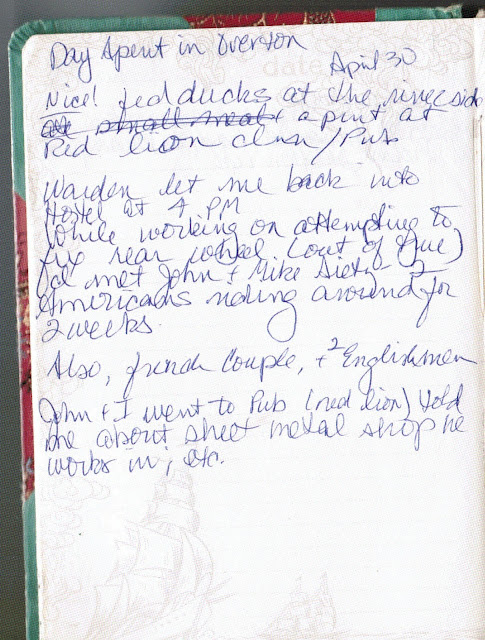 Day Spent in Overton
April 30
Nice! fed ducks at the river side
ate small meal + a pint at
Red lion Inn/Pub
Warden let me back into
Hostel at 4 PM
While working on attempting to
fix rear wheel (out of true)
I met John + Mike - 2
Americans riding around for
2 weeks.
Also, french Couple, + 2 Englishmen
John + I went to Pub (red lion) told
me about sheet metal shop he
works in, etc.